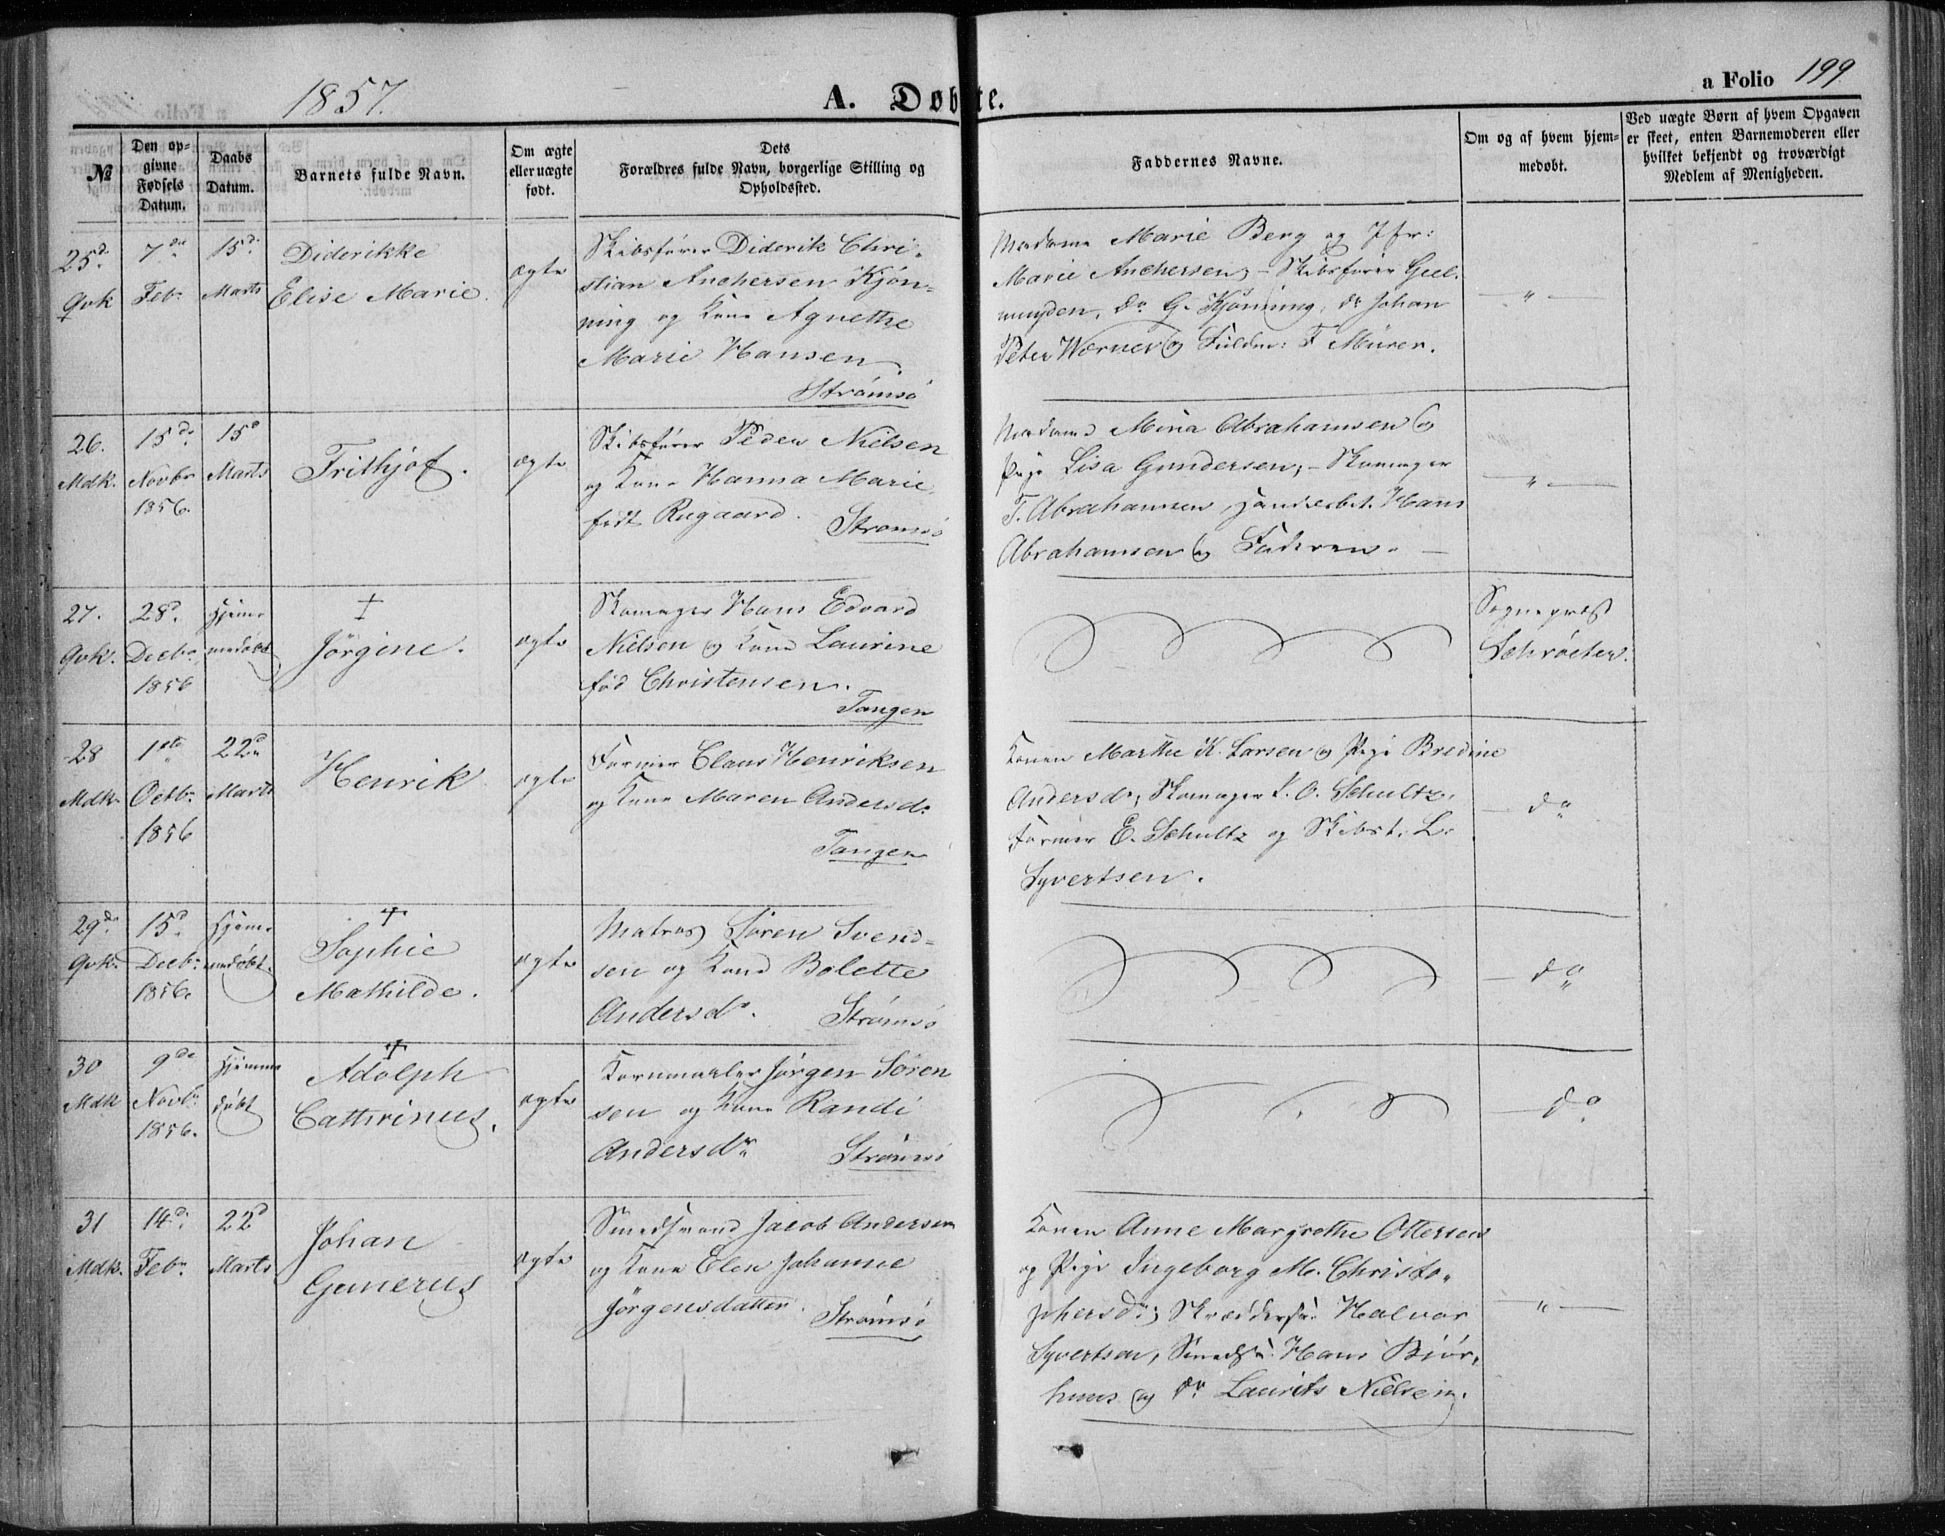 1857.
A. Døbte.
a Folio 199
№
Den opgivne Fødsels Datum.
Daabs Datum.
Barnets fulde Navn.
Om ægte eller uægte født.
Dets Forældres fulde Navn, borgerlige Stilling og Opholdssted.
Faddernes Navne.
Om og af hvem hjemmedøbt.
Ved uægte Børn af hvem Opgaven er skeet, enten Barnemoderen eller hvilket bekjendt og troværdigt Medlem af Menigheden.
25d.
Qvk
7de
Feb.
15d.
Marts
Diderikke
Elise Marie.
ægte
Skibsfører Diderik Chri-
stian Anchersen Kjøn-
ning og Kone Agnethe
Marie Hansen
Strømsø
Madame Marie Berg og Jfr:
Marie Anchersen, - Skibsfører Geel-
muyden, do G. Kjönning, do Johan
Peter Wærner og Fuldm: F Mürer.
"
26.
Mdk.
15de
Novbr
1856.
15d
Marts
Frithjof.
ægte
Skibsfører Peder Nielsen
og Kone Hanna Marie
født Rugaard.
Strømsö
Madame Mina Abrahamsen og
Pige Lisa Gundersen, - Skomager
T. Abrahamsen, Handelsbet. Hans
Abrahamsen og Faderen.
"
27.
Qvk.
28d.
Decbr.
1856
Hjemmedöbt
†
Jörgine.
ægte
Skomager Hans Edvard
Nielsen og Kone Laurine
fød Christensen.
Tangen
Sognepræst
Schröeter.
28
Mdk.
1ste
Octbr.
1856
22d
Marts
Henrik
ægte
Former Claus Henriksen
og Kone Maren Andersdr
Tangen
Konen Marthe K. Larsen og Pige Bredine
Andersdr, Skomager P. O. Schultz,
Former E. Schultz og Skibst. L.
Syvertsen.
do
29de
Qvk.
15d.
Decbr.
1856.
Hjemmedöbt.
†
Sophie
Mathilde.
ægte
Matros Sören Svend-
sen og Kone Bolette
Andersdr.
Strømsö
do
30
Mdk
9de
Novbr.
1856.
Hjemmedöbt
†
Adolph
Cathrinus.
ægte
Kornmaaler Jörgen Sören
sen og Kone Randi
Andersdr
Strömsö
do
31
Mdk.
14d.
Febr.
22d
Marts
Johan
Gunerus
ægte
Smedsvend Jacob Andersen
og Kone Elen Johanne
Jörgensdatter.
Strømsö
Konen Anne Margrethe Ottersen
og Pige Ingeborg M. Christo-
phersdr; Skræddersv. Halvor
Syvertsen, Smedsv. Hans Biör-
huus og do Laurits Nielsen.
"